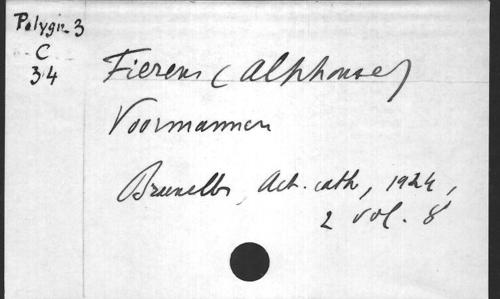 Polygr. 3
C
34
Fierens (Alphonse)
Voormannen
Bruxelles, Act. cath, 1924,
2 vol. 8°